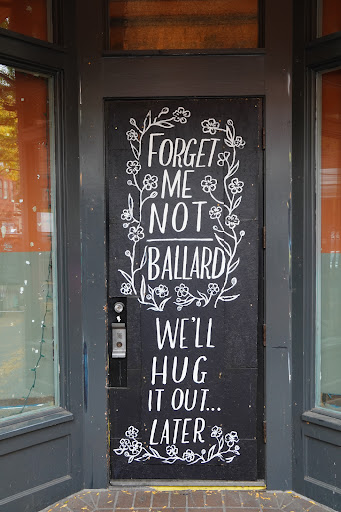 FORGET
ME
NOT
BALLARD
WE'LL
HUG
IT OUT...
LATER